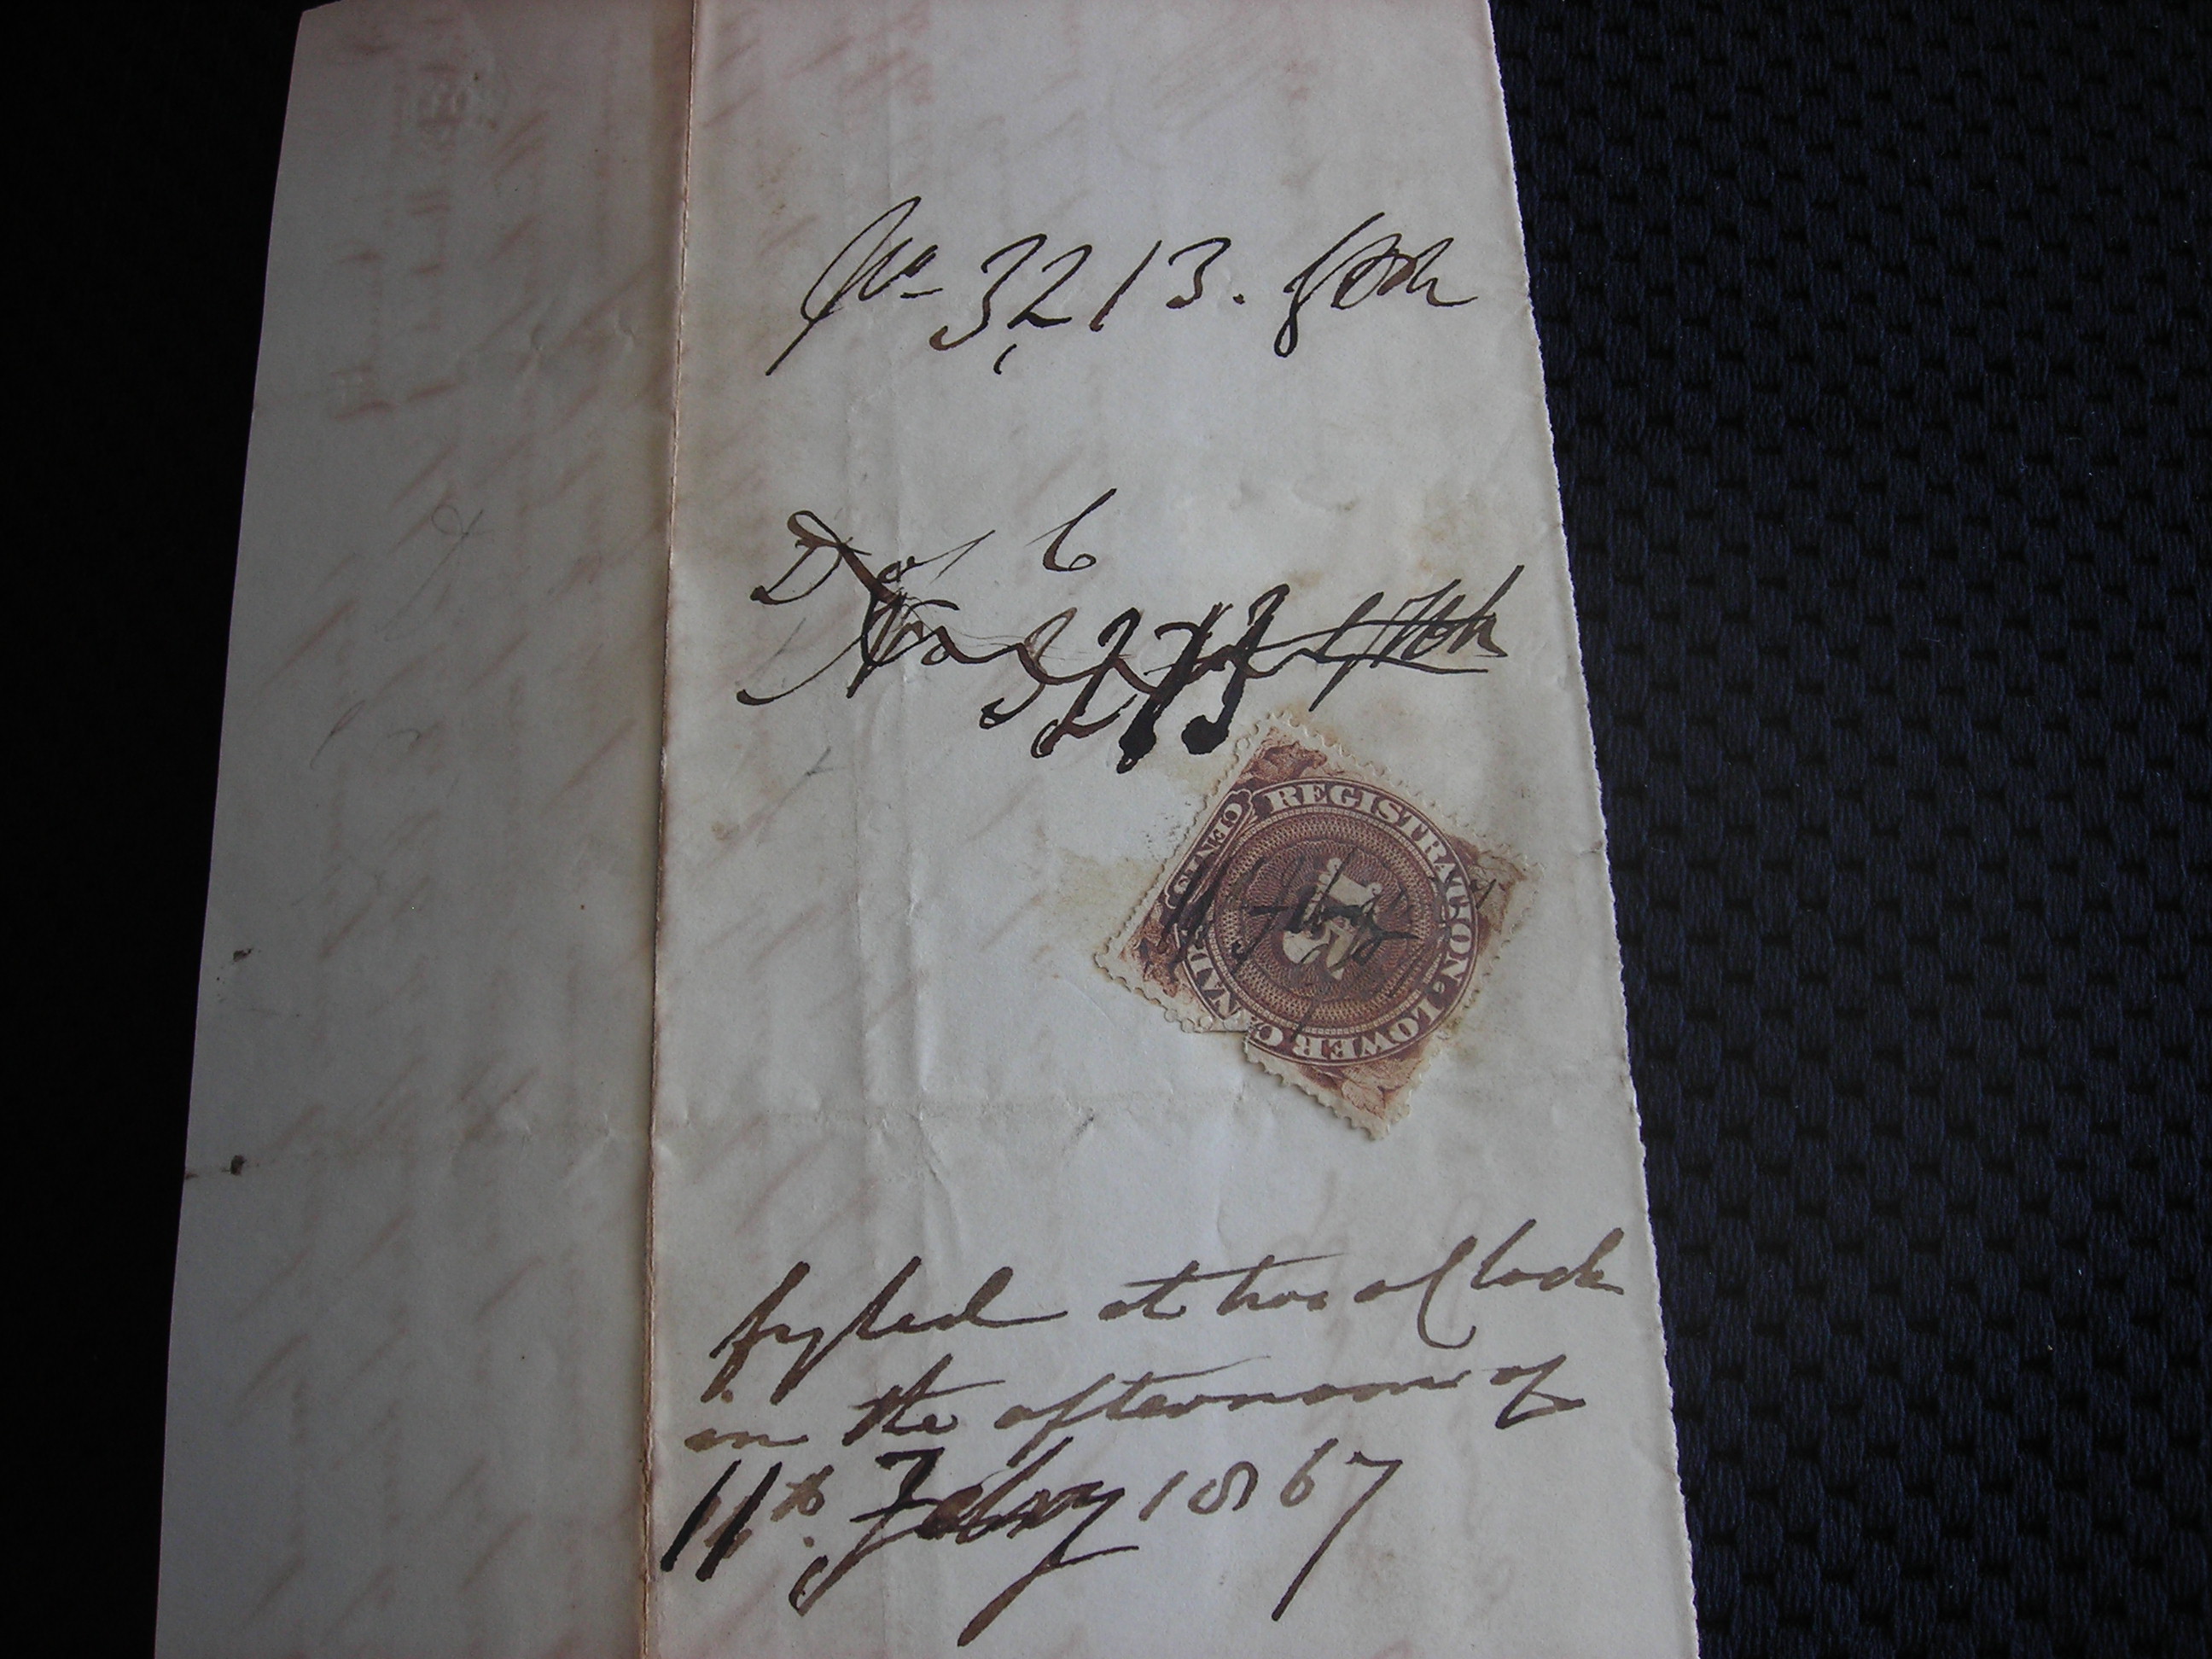 No 3213.
D of 6
No 3213
CENTS REGISTRATION LOWER CANADA
11 Feby
fyled at two o Clock
in the afternoon of
11th Feby 1867